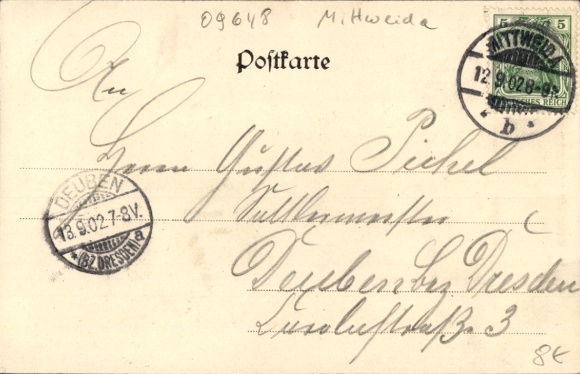 09648 Mittweida
Postkarte
5 5
MITTWEIDA
12.9.02 8-9
b
REICH
An
Herrn Gustav Pichel
Sattlermeister
DEUBEN
13.9.02.7-8V.
*(BZ.DRESDEN)a
Deuben bz Dresden
3
8€